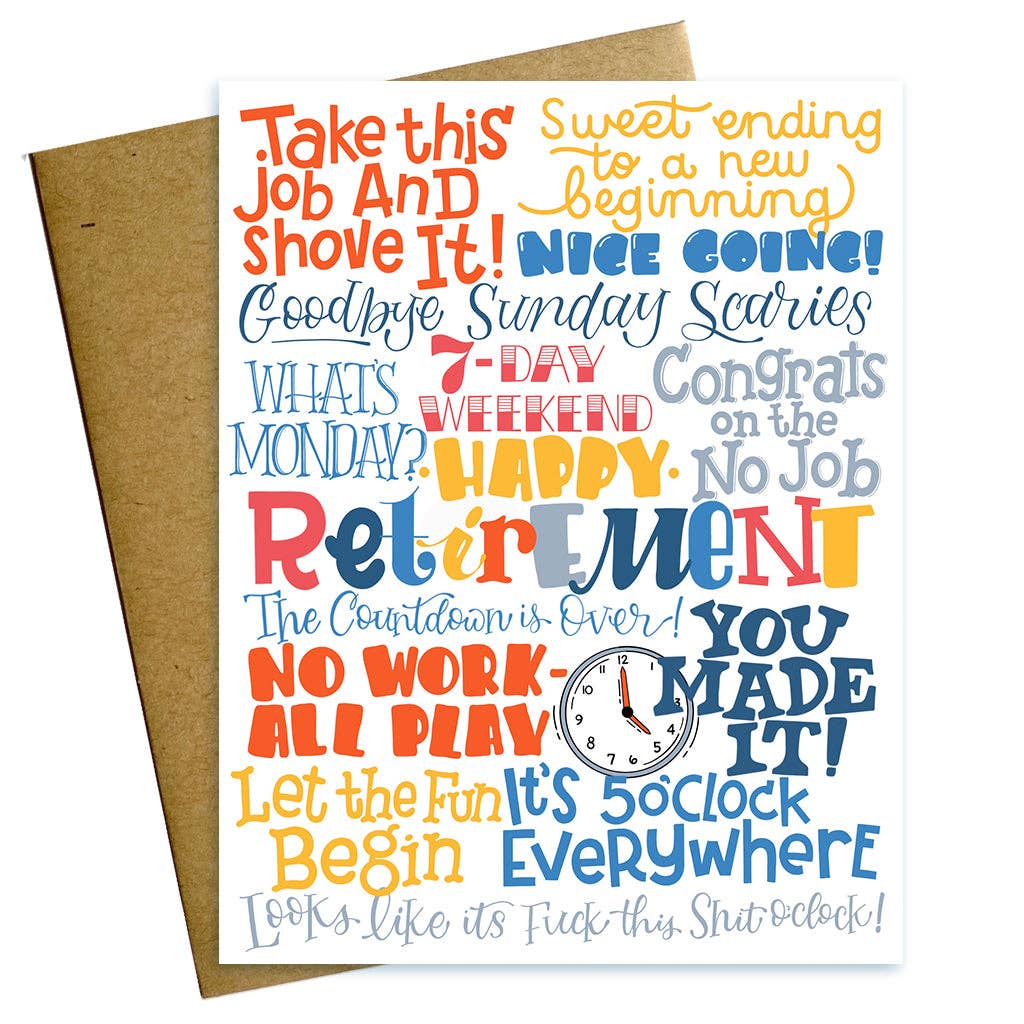 Take this
job And
shove It!
Sweet ending
to a new
beginning
NICE GOING!
Goodbye Sunday Scaries
WHAT'S
MONDAY?
7-DAY
WEEKEND
Congrats
on the
No Job
HAPPY
RetirEMeNT
The Countdown is Over!
NO WORK-
ALL PLAY
12
1
3
4
5
6
7
8
9
10
11
YOU
MADE
IT!
Let the Fun
Begin
It's 5o'clock
EveRywherE
Looks like its Fuck this Shit o'clock!